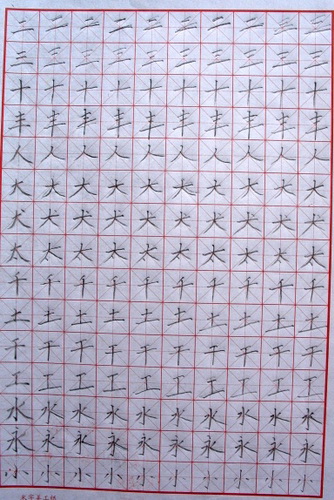 二 二 二 二 二 二 二 二 三 三
三 三 三 三 三 三 三 三 三 三
十 十 十 十 十 十 十 十 十 十
丰 丰 丰 丰 丰 丰 丰 丰 丰 丰
人 人 人 人 人 人 人 人 人 人
大 大 大 大 大 大 大 大 大 大
犬 犬 犬 犬 犬 犬 犬 犬 犬 犬
太 太 太 太 太 太 太 太 太 太
千 千 千 千 千 千 千 千 千 千
土 土 土 土 土 土 土 土 土 土
干 干 干 干 干 干 干 干 干 干
工 工 工 工 工 工 工 工 工 工
水 水 水 水 水 水 水 水 水 水
永 永 永 永 永 永 永 永 永 永
小 小 小 小 小 小 小 小 小 小